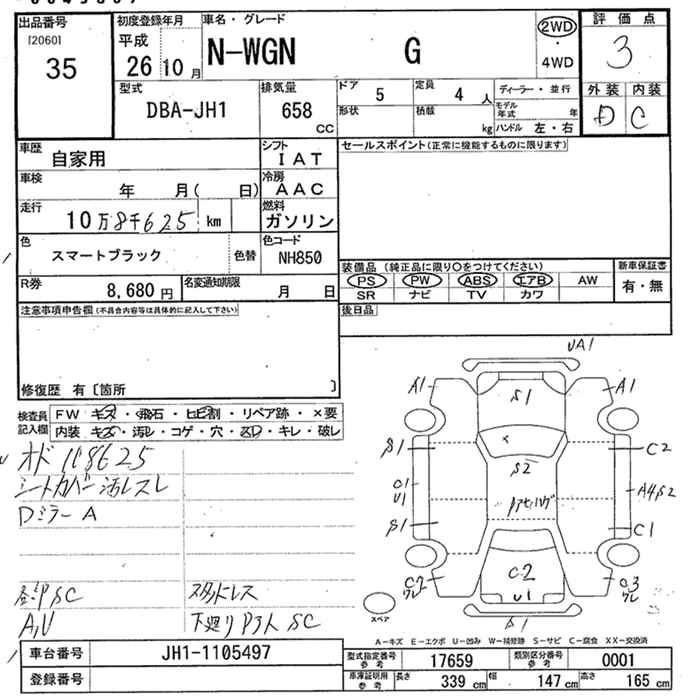 出品番号
[2060]
35
初度登録年月
平成
26 10月
車名・グレード
N-WGN G
2WD
・
4WD
評価点
3
外装 内装
D C
型式
DBA-JH1
排気量
658
cc
ドア 5
形状
定員 4 人
積載 kg
ディーラー・並行
モデル年式 年
ハンドル 左・右
車歴
自家用
シフト
IAT
車検
年 月( 日)
冷房
AAC
走行
10万8千625 km
燃料
ガソリン
色
スマートブラック
色替
色コード
NH850
R券
8,680円
名変通知期限
月 日
セールスポイント(正常に機能するものに限ります)
装備品 (純正品に限り○をつけてください)
PS PW ABS エアB AW
SR ナビ TV カワ
新車保証書
有・無
後日品
注意事項申告欄(不具合内容等は具体的に記入して下さい)
修復歴 有〔箇所 〕
検査員
記入欄
FW キズ・飛石・ヒビ割・リペア跡・×要
内装 キズ・汚レ・コゲ・穴・スロ・キレ・破レ
オド 108625
シートカバー汚レスレ
Dミラー A
SC
A,U
スタッドレス
下廻り SC
UA1
A1
S1
A1
S1
C2
S2
U1
A4S2
S1
C1
C2
C2
U1
C3
S1
スペア
A−キズ E−エクボ U−凹み W−補修跡 S−サビ C−腐食 XX−交換済
車台番号
JH1-1105497
登録番号
型式指定番号
参考
17659
類別区分番号
参考
0001
車庫証明用
参考
長さ
339 cm
幅
147 cm
高さ
165 cm